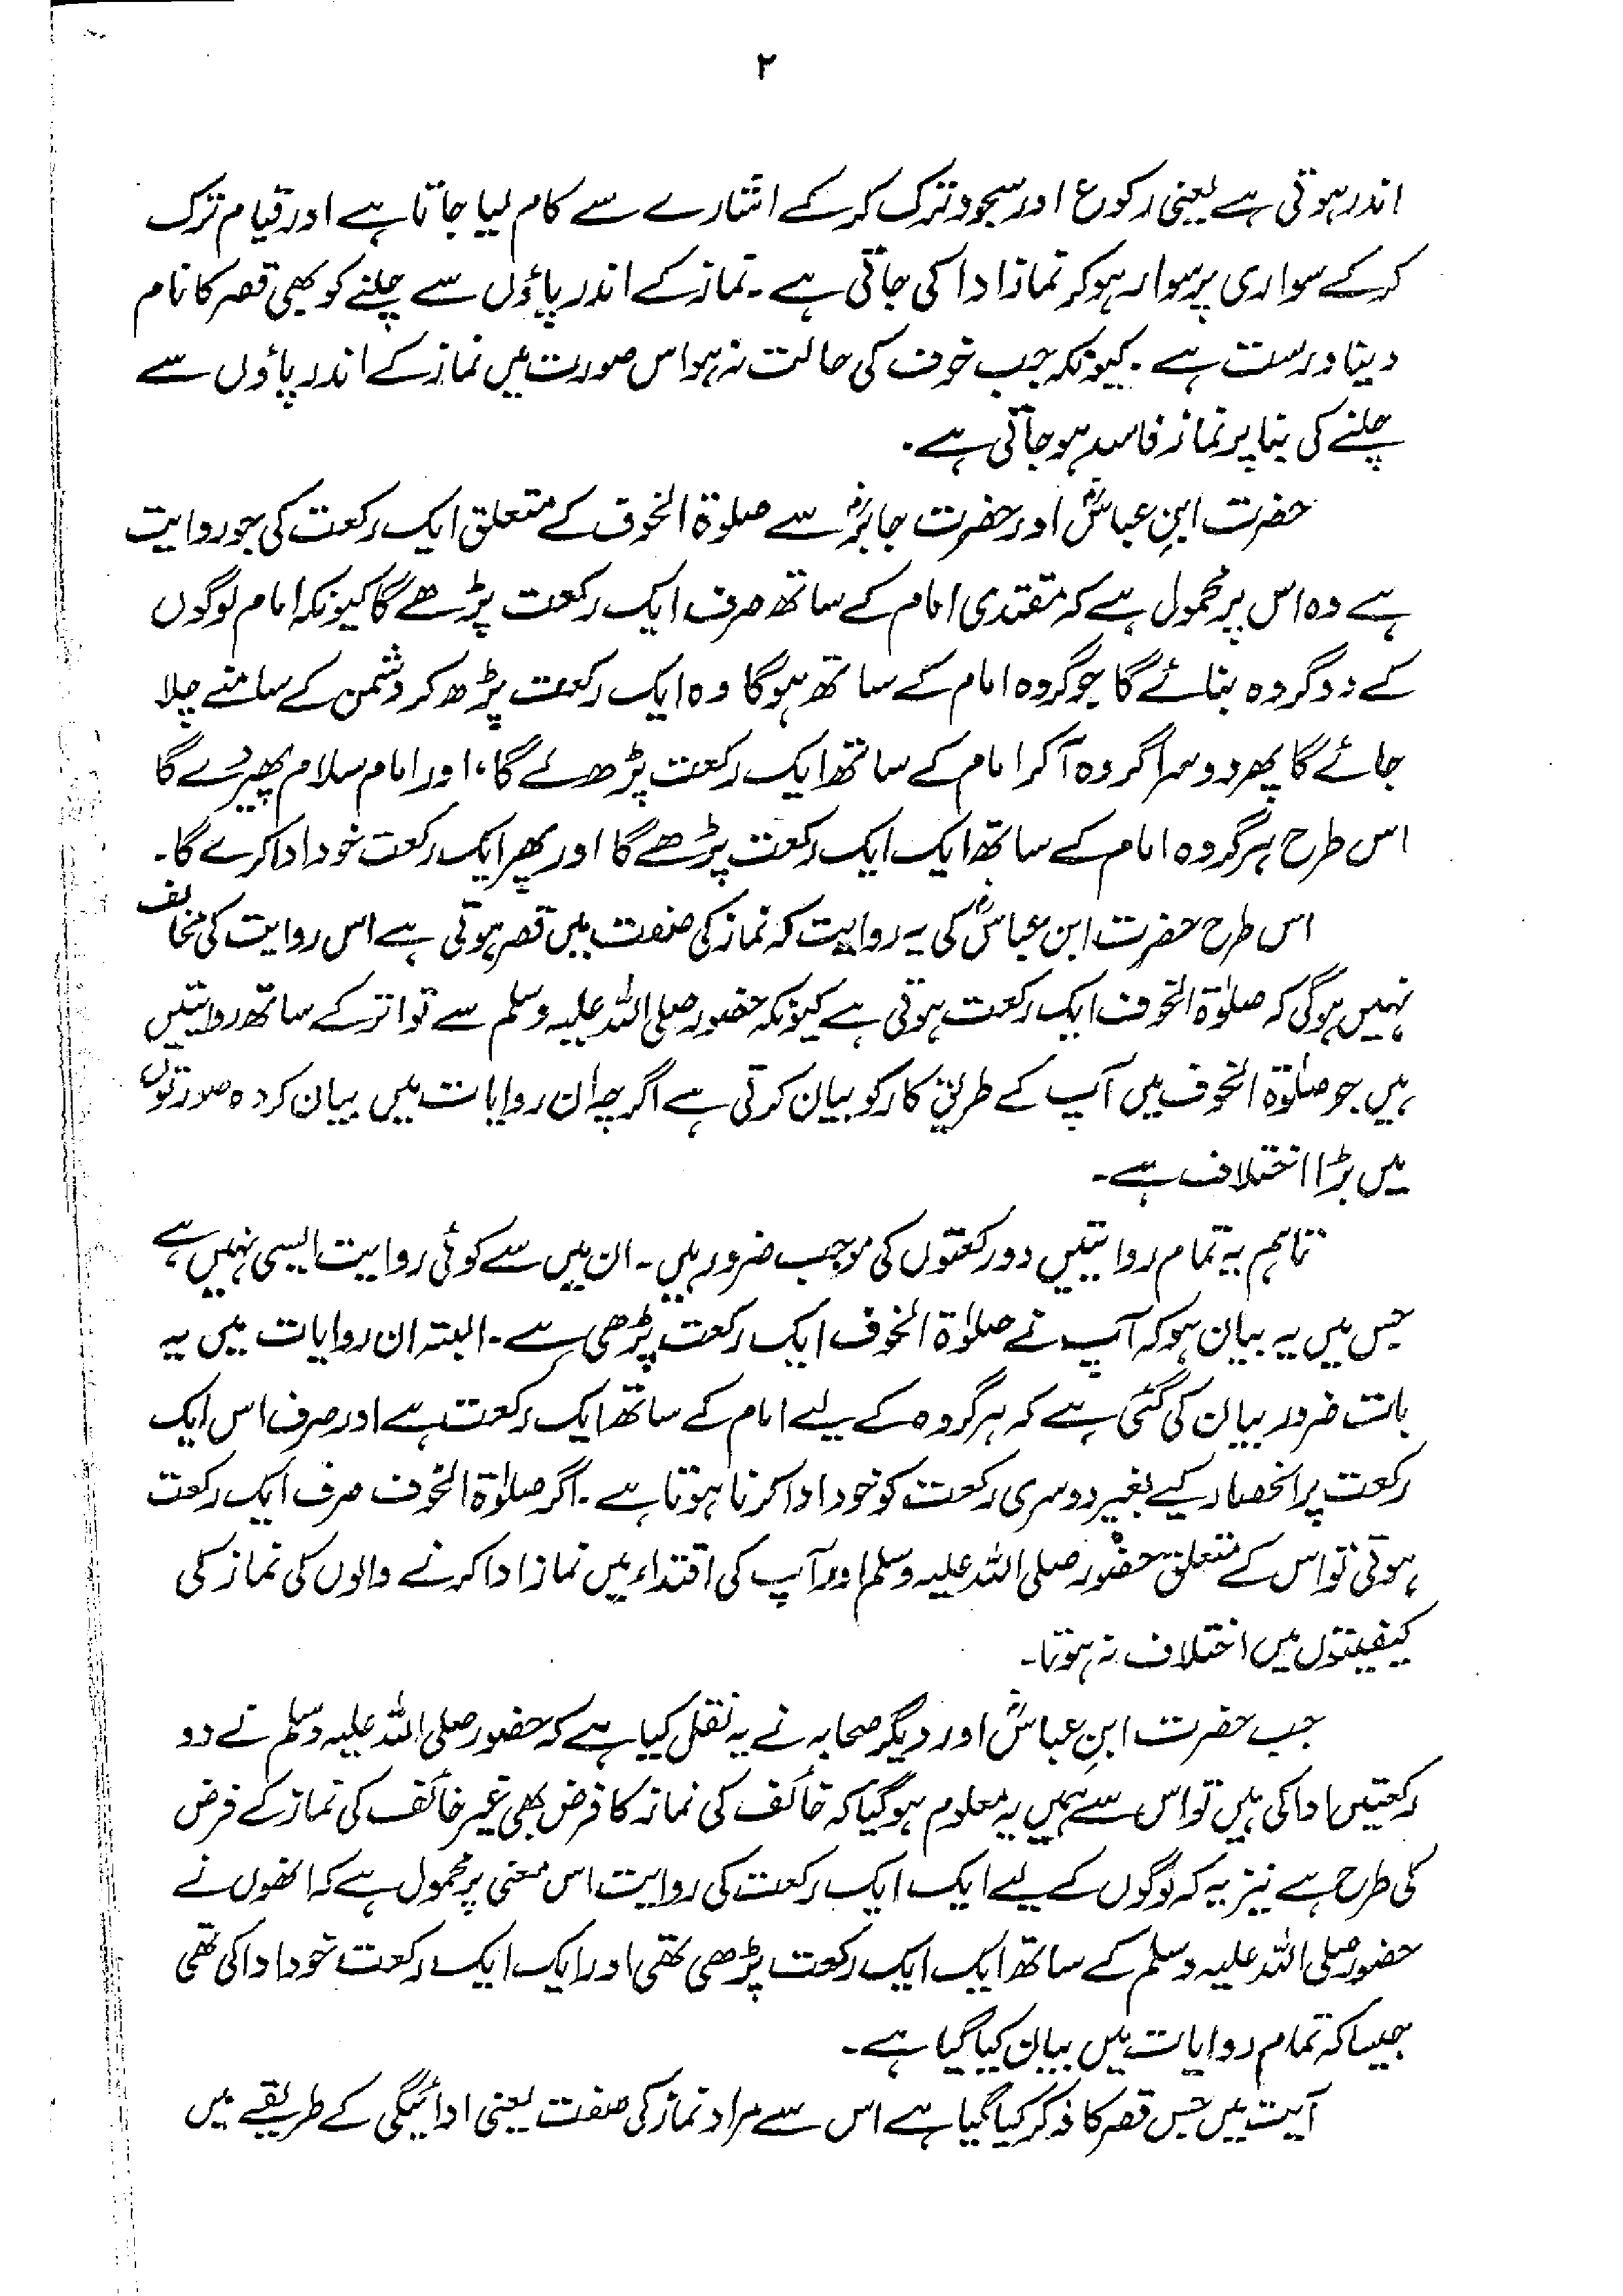 ۲
اندر ہوتی ہے یعنی رکوع اور سجود ترک کرکے اشارے سے کام لیا جاتا ہے اور قیام ترک
کرکے سواری پر سوار ہوکر نماز ادا کی جاتی ہے۔ نماز کے اندر پاؤں سے چلنے کو بھی قصر کا نام
دینا درست ہے۔ کیونکہ جب خوف کی حالت نہ ہو اس صورت میں نماز کے اندر پاؤں سے
چلنے کی بنا پر نماز فاسد ہوجاتی ہے۔
حضرت ابنِ عباسؓ اور حضرت جابرؓ سے صلوٰۃ الخوف کے متعلق ایک رکعت کی جو روایت
ہے وہ اس پر محمول ہے کہ مقتدی امام کے ساتھ صرف ایک رکعت پڑھے گا کیونکہ امام لوگوں
کے دو گروہ بنائے گا جو گروہ امام کے ساتھ ہوگا وہ ایک رکعت پڑھ کر دشمن کے سامنے چلا
جائے گا پھر دوسرا گروہ آکر امام کے ساتھ ایک رکعت پڑھ لے گا، اور امام سلام پھیر دے گا
اس طرح ہر گروہ امام کے ساتھ ایک ایک رکعت پڑھے گا اور پھر ایک رکعت خود ادا کرے گا۔
اس طرح حضرت ابن عباسؓ کی یہ روایت کہ نماز کی صفت میں قصر ہوتی ہے اس روایت کی مخالف
نہیں ہوگی کہ صلوٰۃ الخوف ایک رکعت ہوتی ہے کیونکہ حضور صلی اللہ علیہ وسلم سے تواتر کے ساتھ روایتیں
ہیں جو صلوٰۃ الخوف میں آپ کے طریق کار کو بیان کرتی ہے اگرچہ ان روایات میں بیان کردہ صورتوں
میں بڑا اختلاف ہے۔
تاہم یہ تمام روایتیں دو رکعتوں کی موجب ضرور ہیں۔ ان میں سے کوئی روایت ایسی نہیں ہے
جس میں یہ بیان ہو کہ آپ نے صلوٰۃ الخوف ایک رکعت پڑھی ہے۔ البتہ ان روایات میں یہ
بات ضرور بیان کی گئی ہے کہ ہر گروہ کے لیے امام کے ساتھ ایک رکعت ہے اور صرف اس ایک
رکعت پر انحصار کیے بغیر دوسری رکعت کو خود ادا کرنا ہوتا ہے۔ اگر صلوٰۃ الخوف صرف ایک رکعت
ہوتی تو اس کے متعلق حضورؐ صلی اللہ علیہ وسلم اور آپ کی اقتداء میں نماز ادا کرنے والوں کی نماز کی
کیفیتوں میں اختلاف نہ ہوتا۔
جب حضرت ابنِ عباسؓ اور دیگر صحابہ نے یہ نقل کیا ہے کہ حضور صلی اللہ علیہ وسلم نے دو
رکعتیں ادا کی ہیں تو اس سے ہمیں یہ معلوم ہوگیا کہ خائف کی نماز کا فرض بھی غیر خائف کی نماز کے فرض
کی طرح ہے نیز یہ کہ لوگوں کے لیے ایک ایک رکعت کی روایت اس معنی پر محمول ہے کہ انھوں نے
حضور صلی اللہ علیہ وسلم کے ساتھ ایک ایک رکعت پڑھی تھی اور ایک ایک رکعت خود ادا کی تھی
جیسا کہ تمام روایات میں بیان کیا گیا ہے۔
آیت میں جس قصر کا ذکر کیا گیا ہے اس سے مراد نماز کی صفت یعنی ادائیگی کے طریقے میں